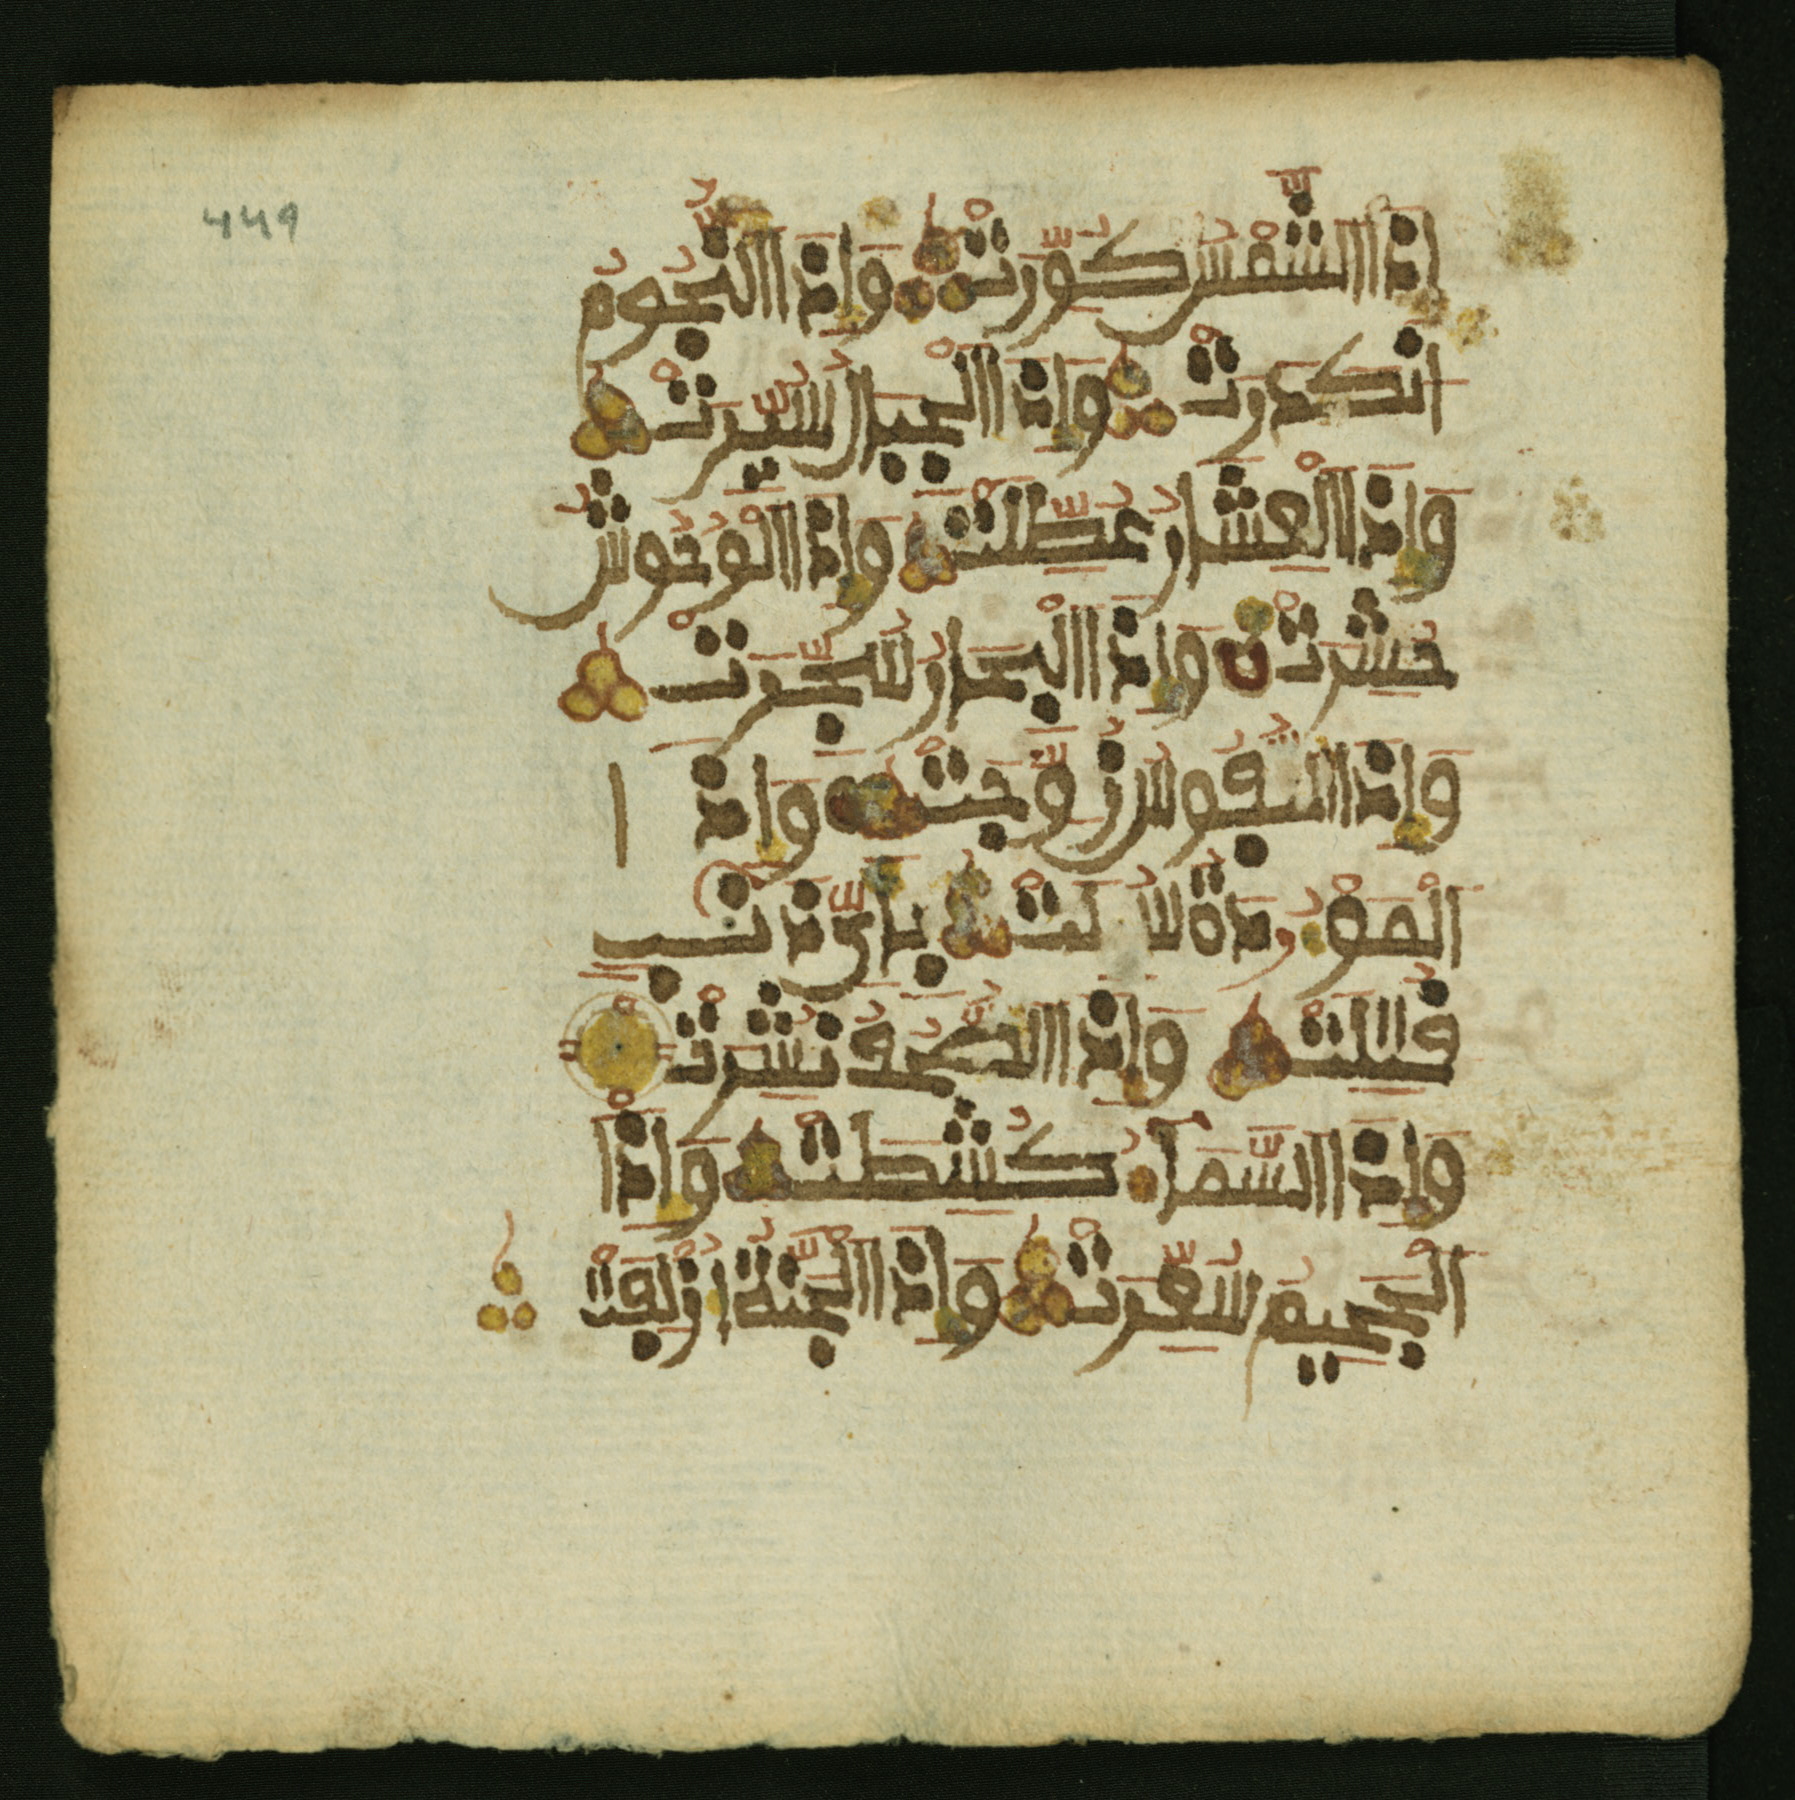 449
إِذَا اَ۬لشَّمْسُ كُوِّرَتْ وَإِذَا اَ۬لنُّجُومُ
اُ۪نكَدَرَتْ وَإِذَا اَ۬لْجِبَالُ سُيِّرَتْ
وَإِذَا اَ۬لْعِشَارُ عُطِّلَتْ وَإِذَا اَ۬لْوُحُوشُ
حُشِرَتْ وَإِذَا اَ۬لْبِحَارُ سُجِّرَتْ
وَإِذَا اَ۬لنُّفُوسُ زُوِّجَتْ وَإِذَا
اَ۬لْمَوْءُۥدَةُ سُئِلَتْ بِأَيِّ ذَنۢبٍ
قُتِلَتْ وَإِذَا اَ۬لصُّحُفُ نُشِرَتْ
وَإِذَا اَ۬لسَّمَآءُ كُشِطَتْ وَإِذَا
اَ۬لْجَحِيمُ سُعِّرَتْ وَإِذَا اَ۬لْجَنَّةُ أُزْلِفَتْ